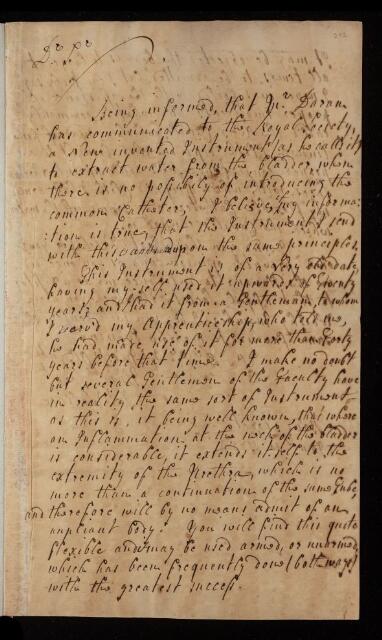 Dr Sr
Being informed, that Mr. Daran
has communicated to the Royal Society,
a New invented Instrument (as he calls it)
to extract water from the bladder, when
there is no possibility of introducing the
common Catheter; I believe, my informa-
:tion is true, that the Instrument I send
with this upon the same principles.
This Instrument is of a very old date,
having myself used it upwards of twenty
years, and had it from a Gentleman to whom
I served my Apprenticeship, who told me,
he had made use of it for more than forty
years before that time. I make no doubt
but several Gentlemen of the Faculty have
in reality the same sort of Instrument
as this is, it being well known, that where
an Inflammation at the neck of the bladder
is considerable, it extends itself to the
extremity of the Urethra, which is no
more than a continuation of the same tube,
and therefore will by no means admit of an
unpliant body. You will find this quite
flexible and may be used armed, or unarmed,
which has been frequently done (both ways)
with the greatest success.